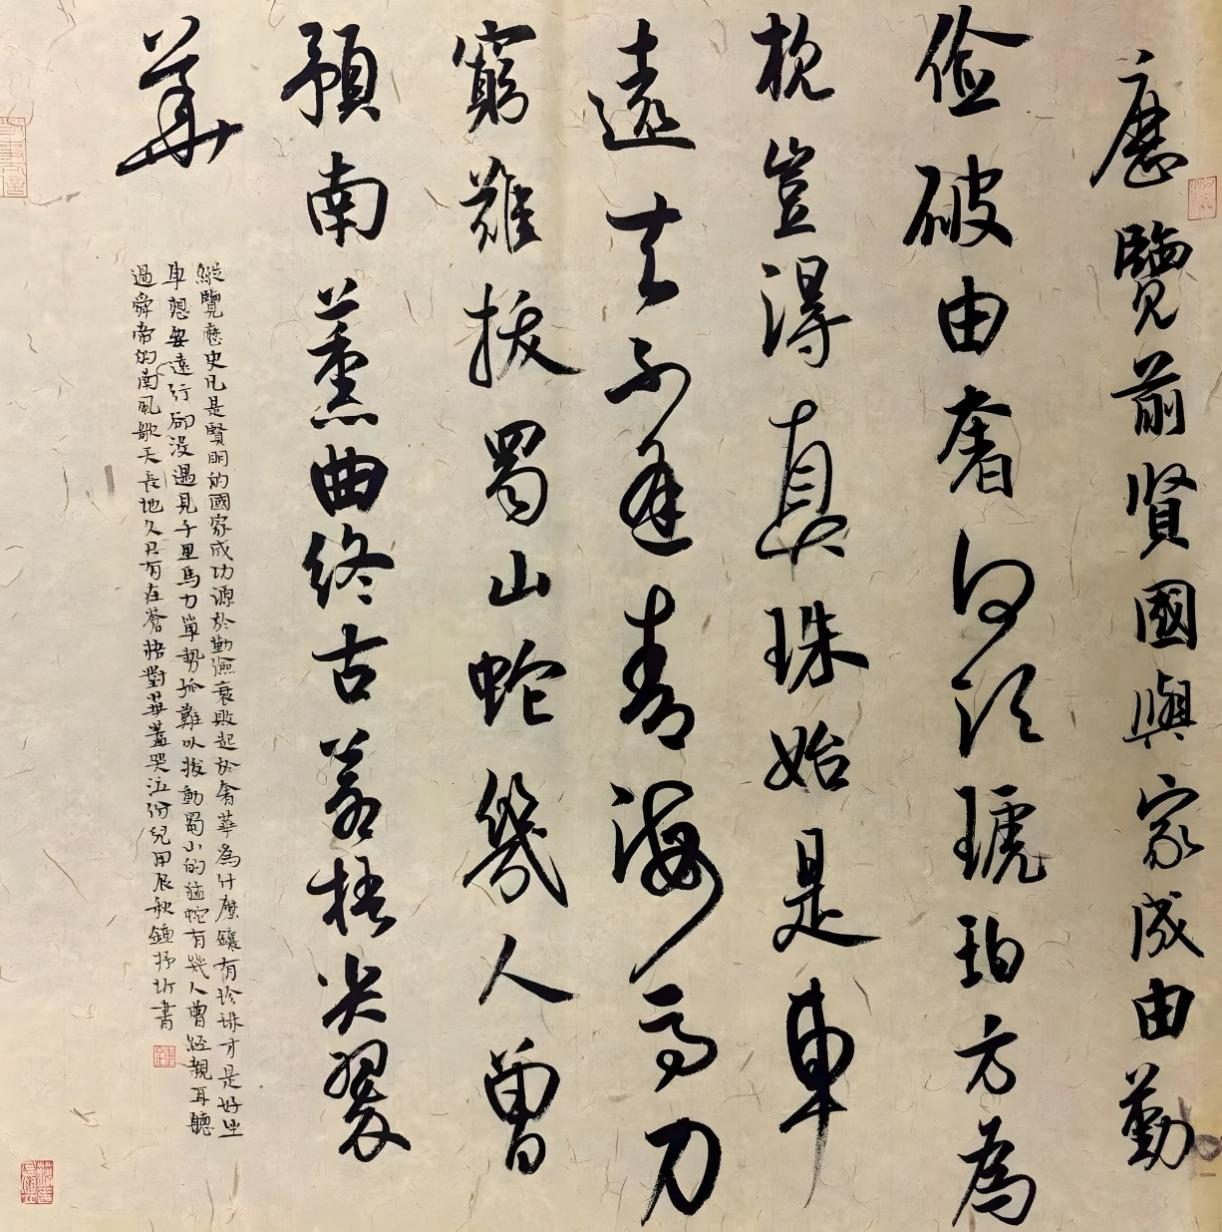 歷覽前賢國與家成由勤
俭破由奢何須琥珀方為
枕豈得真珠始是車
遠去不逢青海馬力
窮難拔蜀山蛇幾人曾
預南薰曲終古蒼梧哭翠
華
縱覽歷史凡是賢明的國家成功源於勤儉衰敗起於奢華為什麼鑲有珍珠才是好坐
車想要遠行卻沒遇見千里馬力單勢孤難以拔動蜀山的猛蛇有幾人曾經親耳聽
過舜帝的南風歌天長地久只有在蒼梧對華蓋哭泣份兒甲辰秋鍾抒圻書